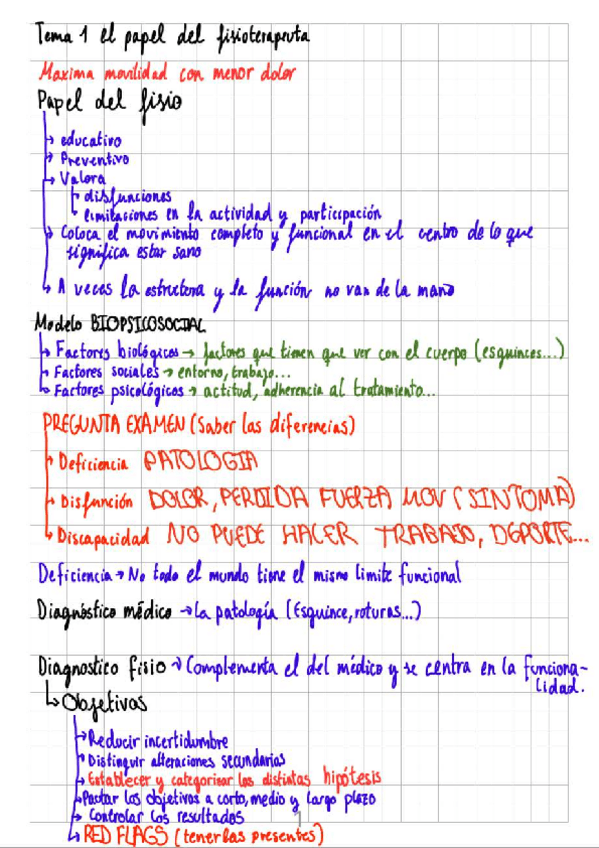 Tema 1 el papel del fisioterapeuta
Maxima movilidad con menor dolor
Papel del fisio
→ educativo
→ Preventivo
→ Valora
→ disfunciones
→ limitaciones en la actividad y participación
→ Coloca el movimiento completo y funcional en el centro de lo que
significa estar sano
→ A veces la estructura y la función no van de la mano
Modelo BIOPSICOSOCIAL
→ Factores biológicos → factores que tienen que ver con el cuerpo (esguinces...)
→ Factores sociales → entorno, trabajo...
→ Factores psicológicos → actitud, adherencia al tratamiento...
PREGUNTA EXAMEN (Saber las diferencias)
→ Deficiencia PATOLOGIA
→ Disfunción DOLOR, PERDIDA FUERZA MOV (SINTOMA)
→ Discapacidad NO PUEDE HACER TRABAJO, DEPORTE...
Deficiencia → No todo el mundo tiene el mismo limite funcional
Diagnóstico médico → La patología (Esguince, roturas...)
Diagnostico fisio → Complementa el del médico y se centra en la funciona-
lidad.
↳ Objetivos
→ Reducir incertidumbre
→ Distinguir alteraciones secundarias
→ Establecer y categorizar las distintas hipótesis
→ Pautar los objetivos a corto, medio y largo plazo
→ Controlar los resultados
→ RED FLAGS (tenerlas presentes)
1